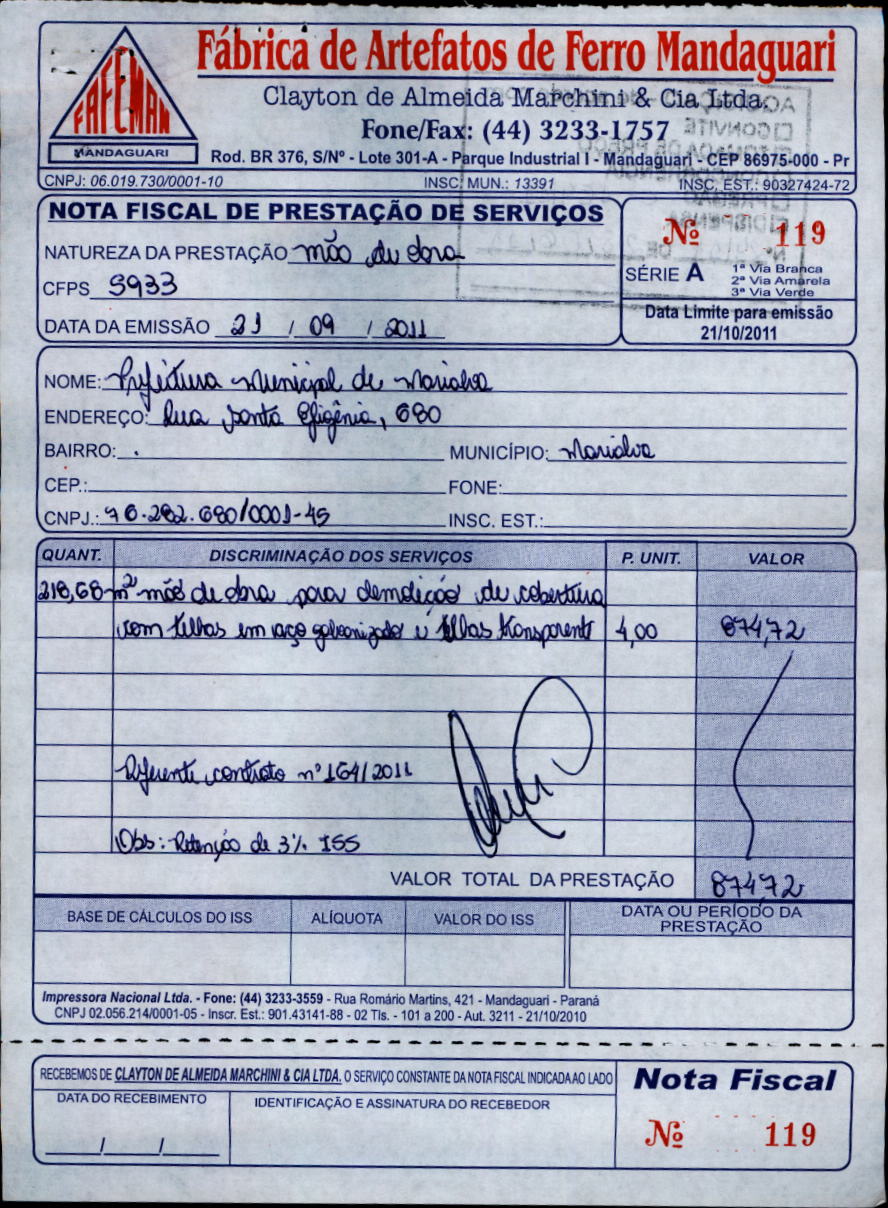 Fábrica de Artefatos de Ferro Mandaguari
FAFEMAN
MANDAGUARI
Clayton de Almeida Marchini & Cia Ltda.
Fone/Fax: (44) 3233-1757
Rod. BR 376, S/Nº - Lote 301-A - Parque Industrial I - Mandaguari - CEP 86975-000 - Pr
CNPJ: 06.019.730/0001-10 INSC. MUN.: 13391 INSC. EST.: 90327424-72
NOTA FISCAL DE PRESTAÇÃO DE SERVIÇOS
Nº 119
NATUREZA DA PRESTAÇÃO mão de obra
SÉRIE A
1ª Via Branca
2ª Via Amarela
3ª Via Verde
CFPS 5933
DATA DA EMISSÃO 21 / 09 / 2011
Data Limite para emissão
21/10/2011
NOME: Prefeitura Municipal de Marialva
ENDEREÇO: Rua Santa Efigênia, 680
BAIRRO: . MUNICÍPIO: Marialva
CEP.: FONE:
CNPJ.: 76.282.680/0001-45 INSC. EST.:
QUANT. DISCRIMINAÇÃO DOS SERVIÇOS P. UNIT. VALOR
218,68 m² mão de obra para demolição de cobertura
com telhas em aço galvanizado e telhas transparente 4,00 874,72
Referente contrato nº 164/2011
Obs: Retenção de 3% ISS
VALOR TOTAL DA PRESTAÇÃO 874,72
BASE DE CÁLCULOS DO ISS ALÍQUOTA VALOR DO ISS DATA OU PERÍODO DA
PRESTAÇÃO
Impressora Nacional Ltda. - Fone: (44) 3233-3559 - Rua Romário Martins, 421 - Mandaguari - Paraná
CNPJ 02.056.214/0001-05 - Inscr. Est.: 901.43141-88 - 02 Tls. - 101 a 200 - Aut. 3211 - 21/10/2010
RECEBEMOS DE CLAYTON DE ALMEIDA MARCHINI & CIA LTDA. O SERVIÇO CONSTANTE DA NOTA FISCAL INDICADA AO LADO
Nota Fiscal
DATA DO RECEBIMENTO IDENTIFICAÇÃO E ASSINATURA DO RECEBEDOR
/ /
Nº 119